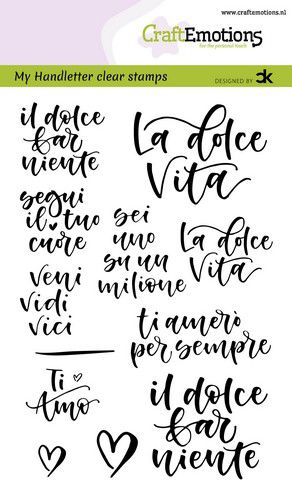 www.craftemotions.nl
CraftEmotions
for the personal touch
My Handletter clear stamps
DESIGNED BY CK
il dolce
far
niente
La dolce
Vita
segui
il tuo
cuore
sei
uno
su un
milione
La dolce
Vita
veni
vidi
vici
ti amerò
per sempre
Ti
Amo
il dolce
far
niente